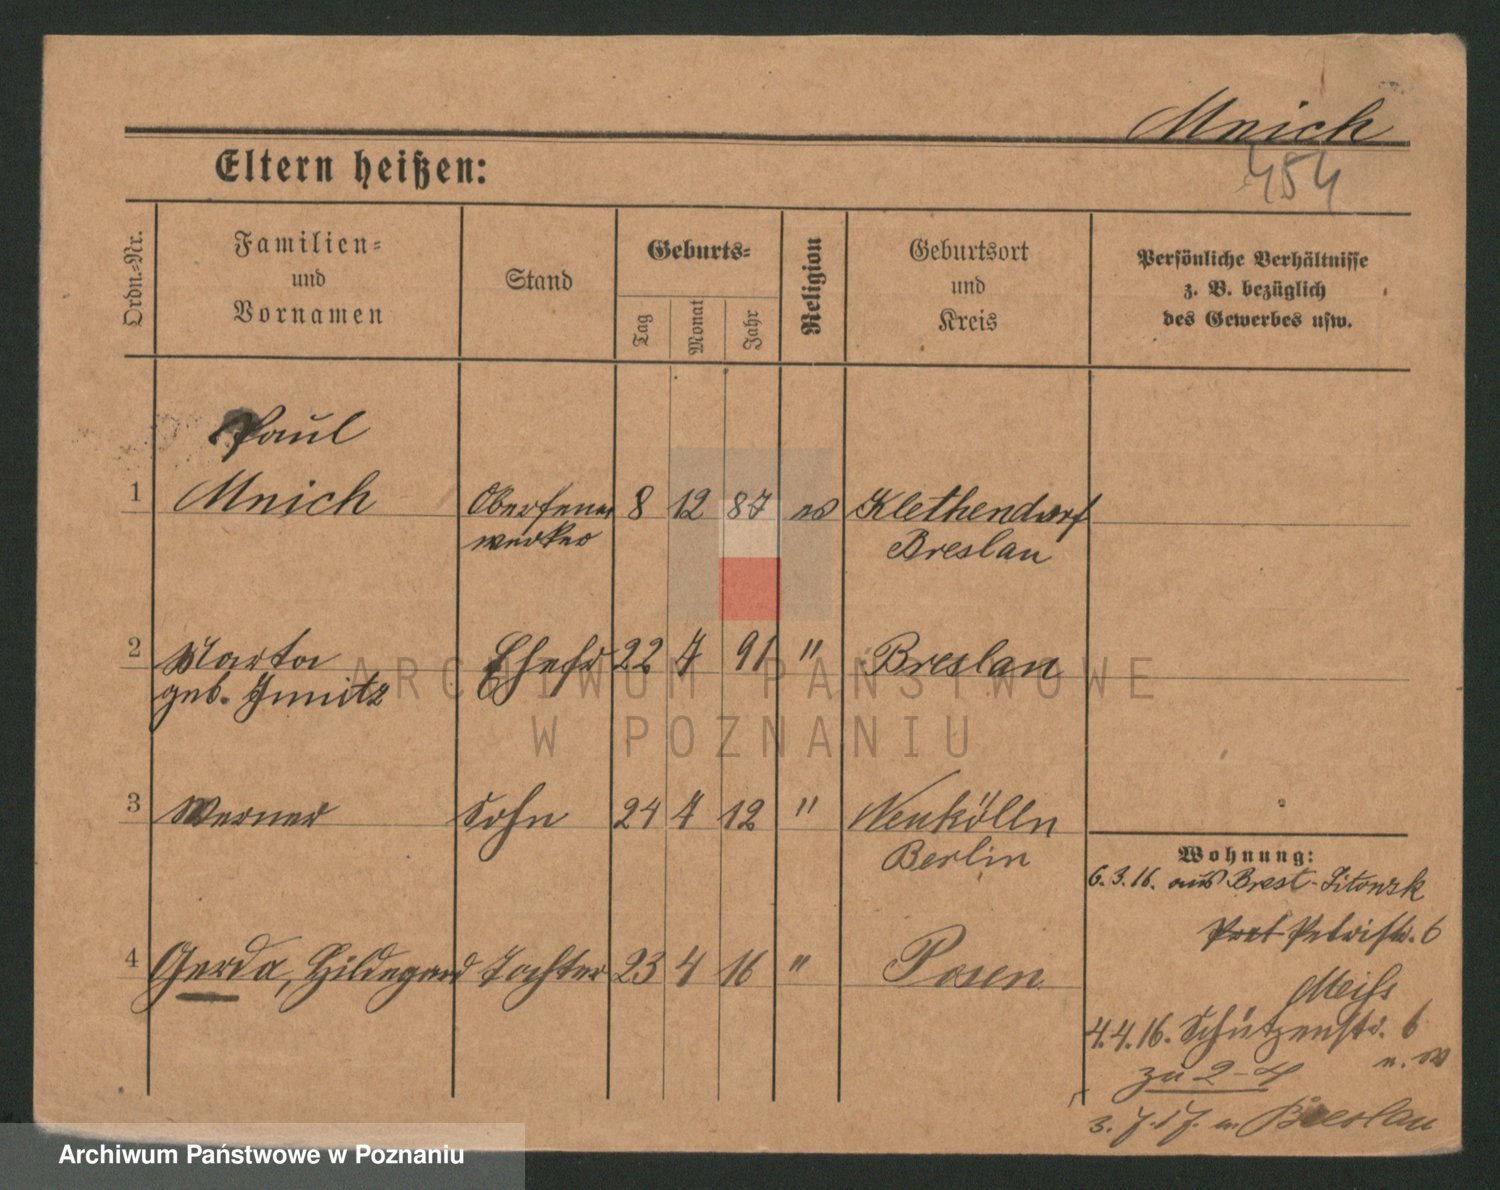 Mnich
454
Eltern heißen:
Ordn.-Nr.
Familien-
und
Vornamen
Stand
Geburts-
Tag
Monat
Jahr
Religion
Geburtsort
und
Kreis
Persönliche Verhältnisse
z. B. bezüglich
des Gewerbes usw.
Paul
1 Mnich Oberfeuer 8 12 87 ev Klethendorf
werker Breslau
2 Marta Ehefr 22 7 91 " Breslau
geb.
3 Werner Sohn 24 7 12 " Neukölln
Berlin
Wohnung:
6.3.16. aus Brest-Litowsk
Petristr. 6
4 Gerda, Hildegard Tochter 23 4 16 " Posen
4.4.16. Schützenstr. 6
zu 2-4
Breslau
ARCHIWUM PAŃSTWOWE
W POZNANIU
Archiwum Państwowe w Poznaniu